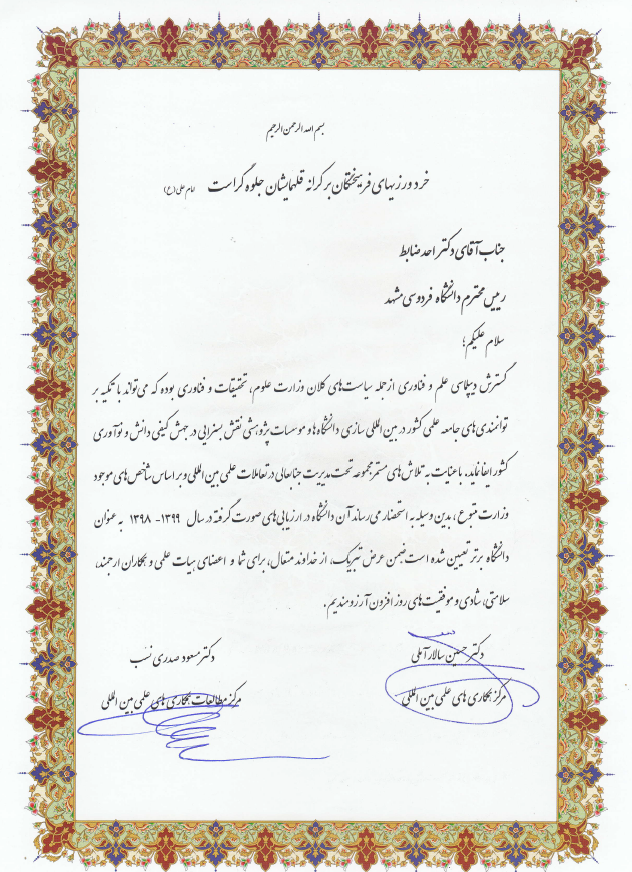 بسم الله الرحمن الرحیم
خردورزیهای فرهیختگان بر کرانه قلمهایشان جلوه گر است امام علی (ع)
جناب آقای دکتر احد ضابط
رییس محترم دانشگاه فردوسی مشهد
سلام علیکم؛
گسترش دیپلماسی علم و فناوری از جمله سیاست‌های کلان وزارت علوم، تحقیقات و فناوری بوده که می‌تواند با تکیه بر
توانمندی‌های جامعه علمی کشور در بین المللی سازی دانشگاه‌ها و موسسات پژوهشی نقش بسزایی در جهش کیفی دانش و نوآوری
کشور ایفا نماید. با عنایت به تلاش‌های مستمر مجموعه تحت مدیریت جنابعالی در تعاملات علمی بین المللی و بر اساس شاخص‌های موجود
وزارت متبوع، بدین وسیله به استحضار می‌رساند آن دانشگاه در ارزیابی‌های صورت گرفته در سال ۱۳۹۹-۱۳۹۸ به عنوان
دانشگاه برتر تعیین شده است ضمن عرض تبریک، از خداوند متعال، برای شما و اعضای هیات علمی و همکاران ارجمند،
سلامتی، شادی و موفقیت‌های روز افزون آرزومندیم.
دکتر حسین سالار آملی دکتر مسعود صدری نسب
مرکز همکاری های علمی بین المللی مرکز مطالعات همکاری های علمی بین المللی